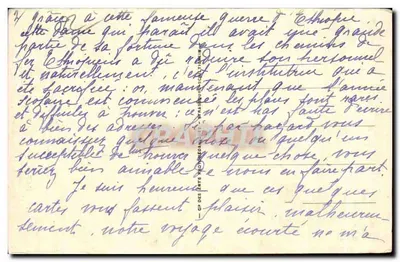 2/ grâce à cette fameuse guerre d'Ethiopie
cette dame qui paraît-il avait une grande
partie de sa fortune dans les chemins de
fer Ethiopiens a dû réduire son personnel
et naturellement c'est l'institutrice qui a
été sacrifiée; or, maintenant que l'année
scolaire est commencée les places sont rares
et difficiles à trouver; ce n'est pas faute d'écrire
à bien des adresses. Si par hasard vous
connaissiez quelque chose, ou quelqu'un
susceptible de trouver quelque chose, vous
seriez bien aimable de nous en faire part.
Je suis heureuse que ces quelques
cartes vous fassent plaisir, malheureu-
sement, notre voyage écourté ne m'a